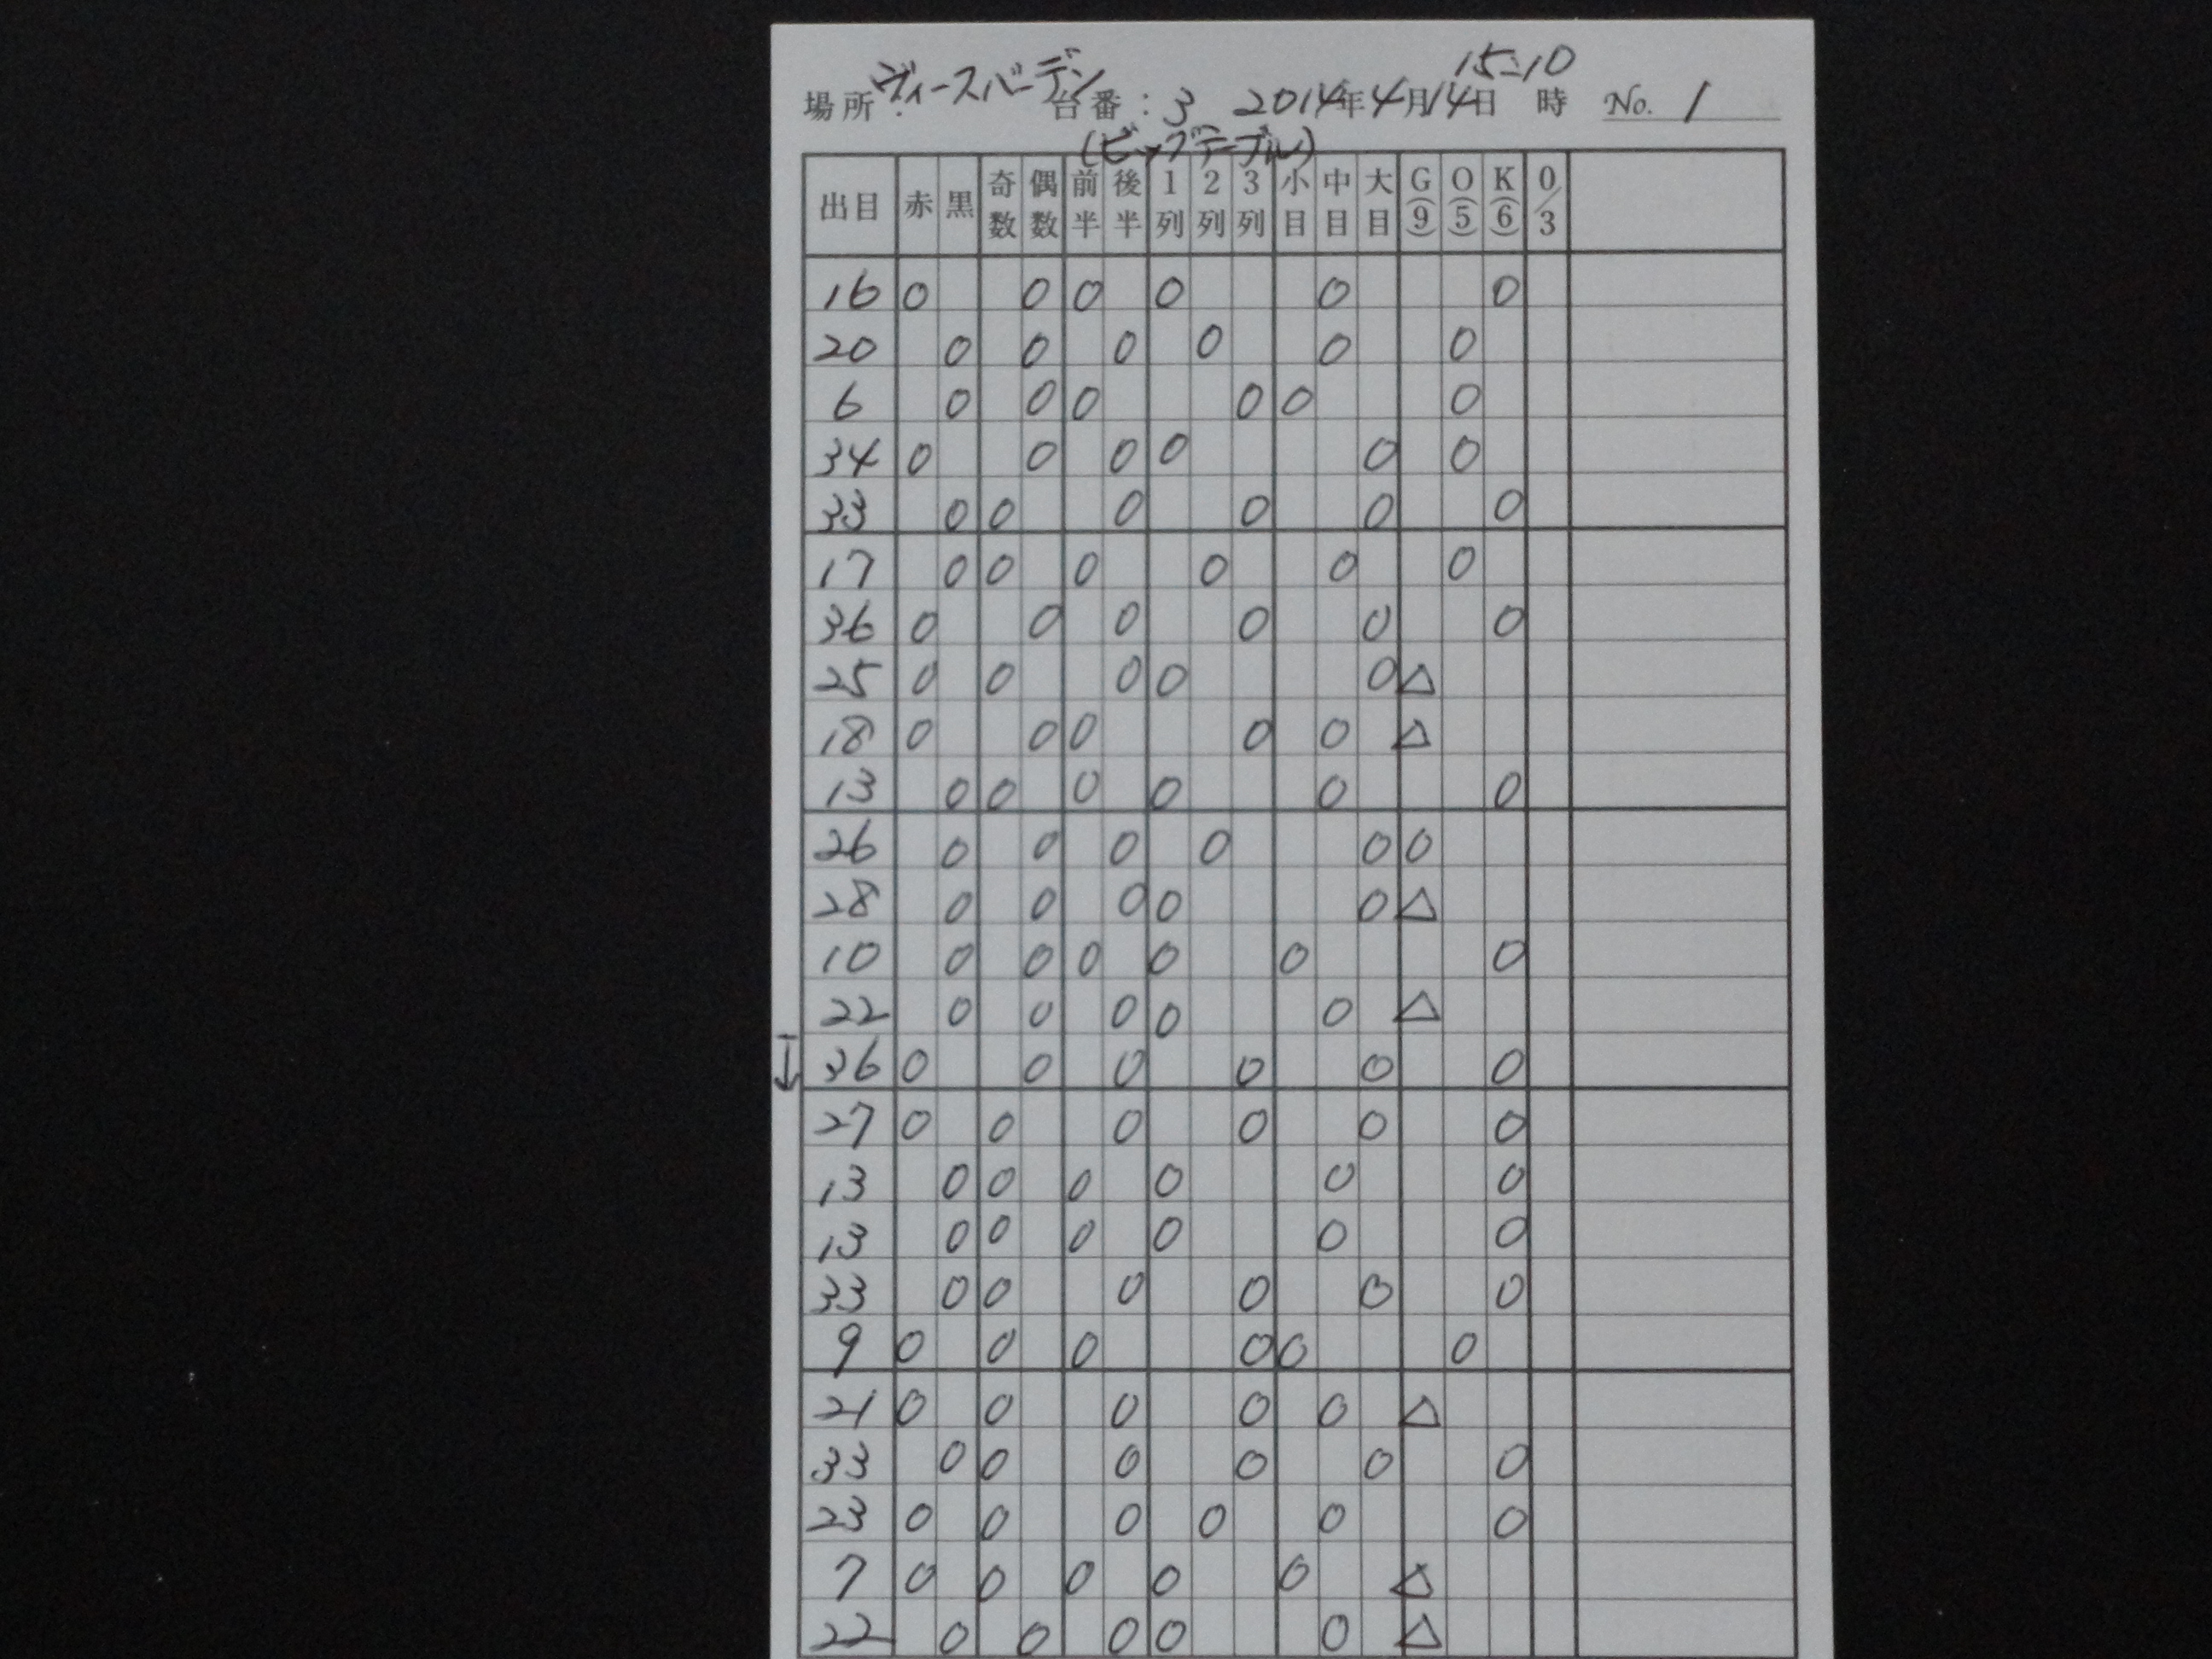 15:10
場所: ヴィースバーデン 台番: 3 2014年4月14日 時 No. 1
(ビッグテーブル)
出目 赤 黒 奇数 偶数 前半 後半 1列 2列 3列 小目 中目 大目 G(9) O(5) K(6) 0/3
16 0 0 0 0 0 0
20 0 0 0 0 0 0
6 0 0 0 0 0 0
34 0 0 0 0 0 0
33 0 0 0 0 0 0
17 0 0 0 0 0 0
36 0 0 0 0 0 0
25 0 0 0 0 0 △
18 0 0 0 0 0 △
13 0 0 0 0 0 0
26 0 0 0 0 0 0
28 0 0 0 0 0 △
10 0 0 0 0 0 0
22 0 0 0 0 0 △
↓ 36 0 0 0 0 0 0
27 0 0 0 0 0 0
13 0 0 0 0 0 0
13 0 0 0 0 0 0
33 0 0 0 0 0 0
9 0 0 0 0 0 0
21 0 0 0 0 0 △
33 0 0 0 0 0 0
23 0 0 0 0 0 0
7 0 0 0 0 0 △
22 0 0 0 0 0 △